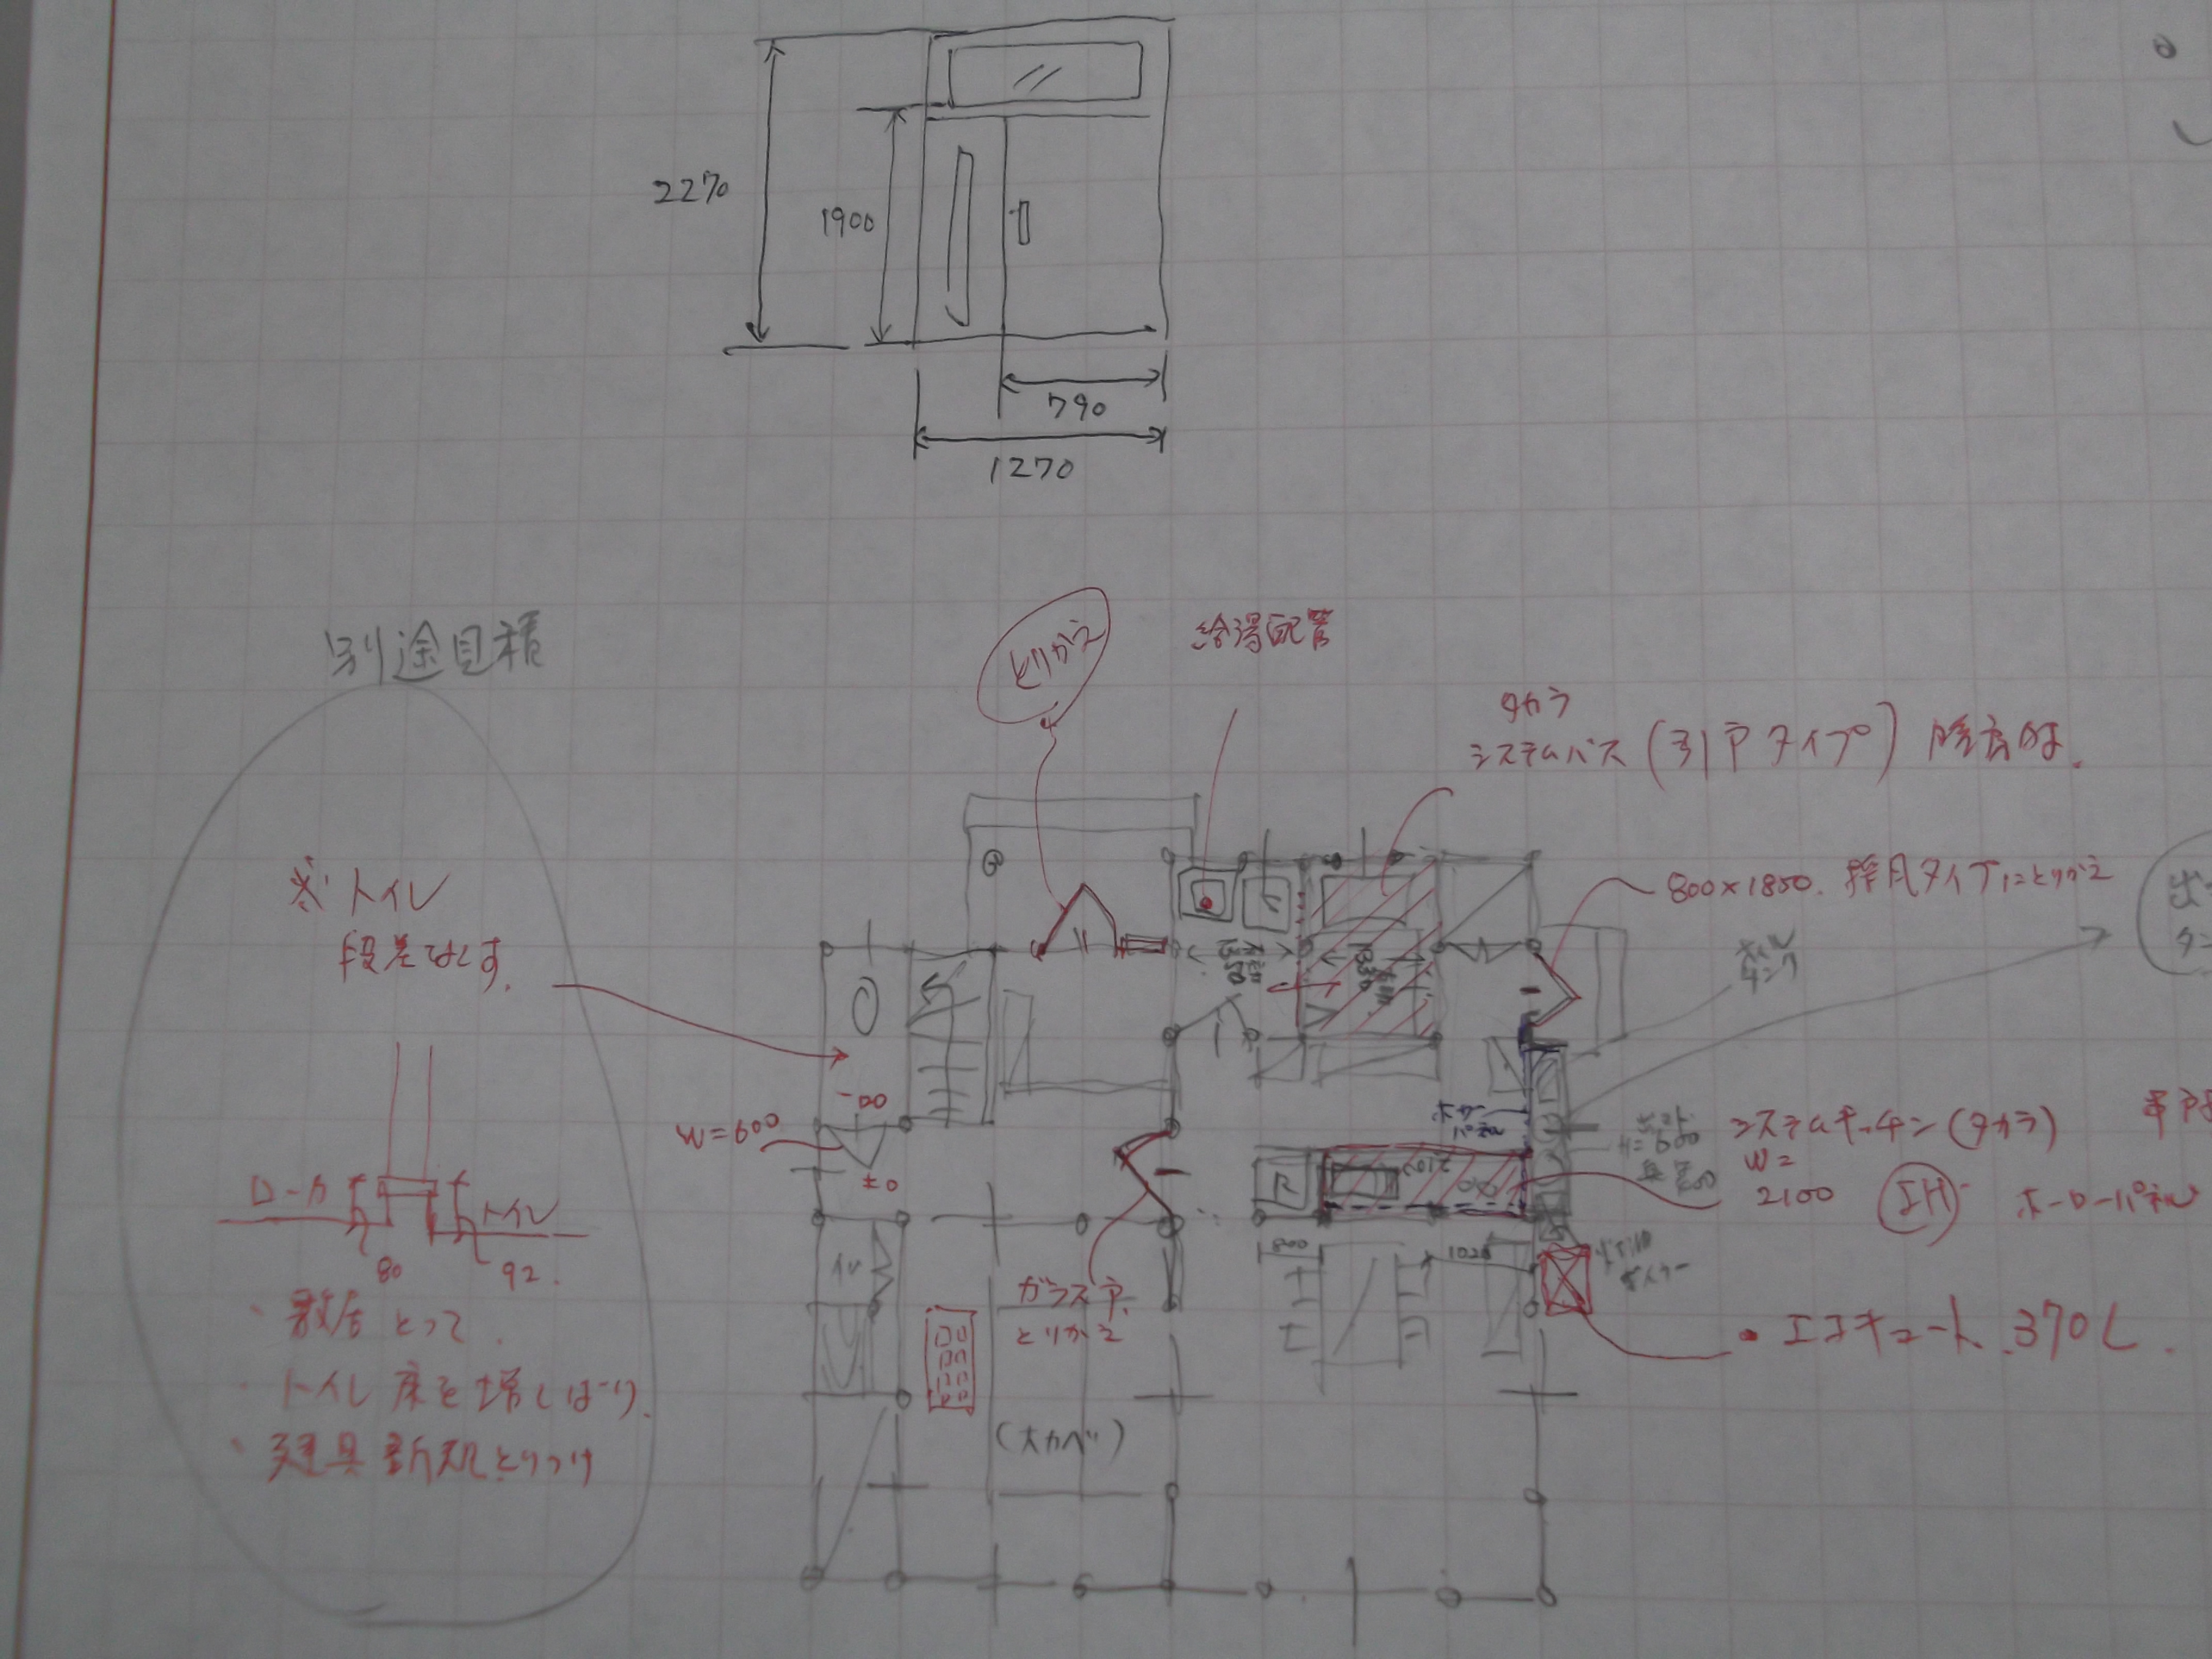 2270
1900
790
1270
別途見積
とりかえ
給湯配管
タカラ
システムバス (引戸タイプ)
800×1850. 採風タイプにとりかえ
※ トイレ
段差なくす.
W=600
±0
ローカ
トイレ
80
92.
・敷居とって.
・トイレ床を増しばり.
・建具新規とりつけ
オイル
タンク
ホーロー
パネル
システムキッチン (タカラ)
W=
2100
IH
ホーローパネル
2100
R
800
1020
ガラス戸.
とりかえ
・エコキュート 370L.
(大カベ)